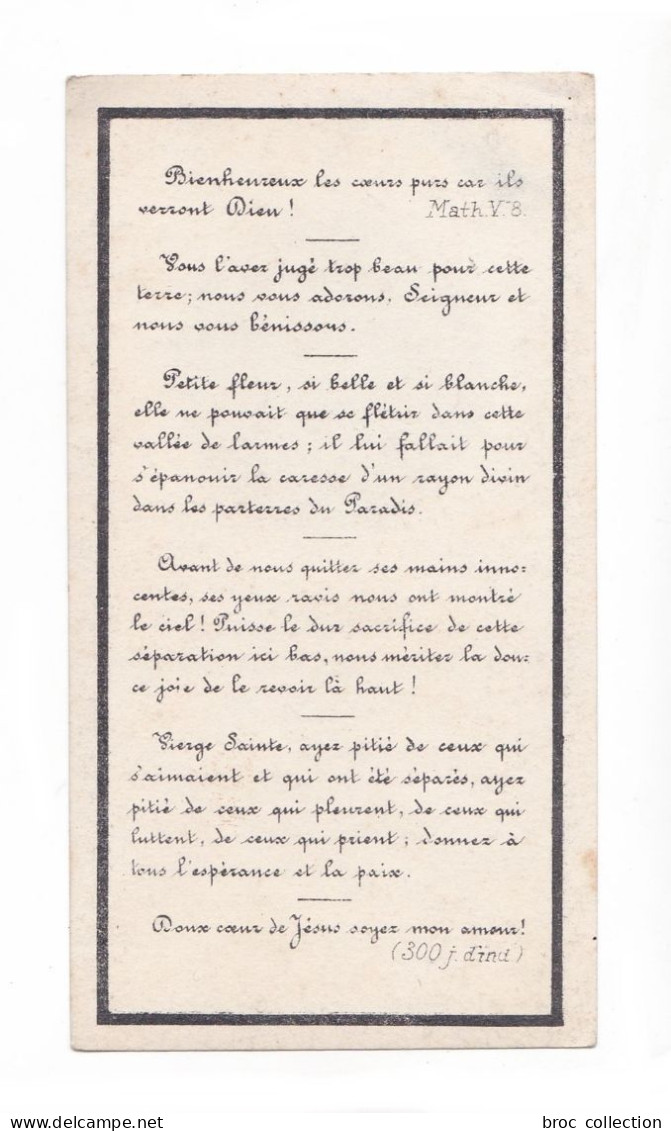 Bienheureux les cœurs purs car ils
verront Dieu! Math. V. 8.
Vous l'avez jugé trop beau pour cette
terre; nous vous adorons, Seigneur et
nous vous bénissons.
Petite fleur, si belle et si blanche,
elle ne pouvait que se flétrir dans cette
vallée de larmes; il lui fallait pour
s'épanouir la caresse d'un rayon divin
dans les parterres du Paradis.
Avant de nous quitter ses mains inno=
centes, ses yeux ravis nous ont montré
le ciel! Puisse le dur sacrifice de cette
séparation ici bas, nous mériter la dou=
ce joie de le revoir là haut!
Vierge Sainte, ayez pitié de ceux qui
s'aimaient et qui ont été séparés, ayez
pitié de ceux qui pleurent, de ceux qui
luttent, de ceux qui prient; donnez à
tous l'espérance et la paix.
Doux cœur de Jésus soyez mon amour!
(300 j. d'ind.)
broc collection